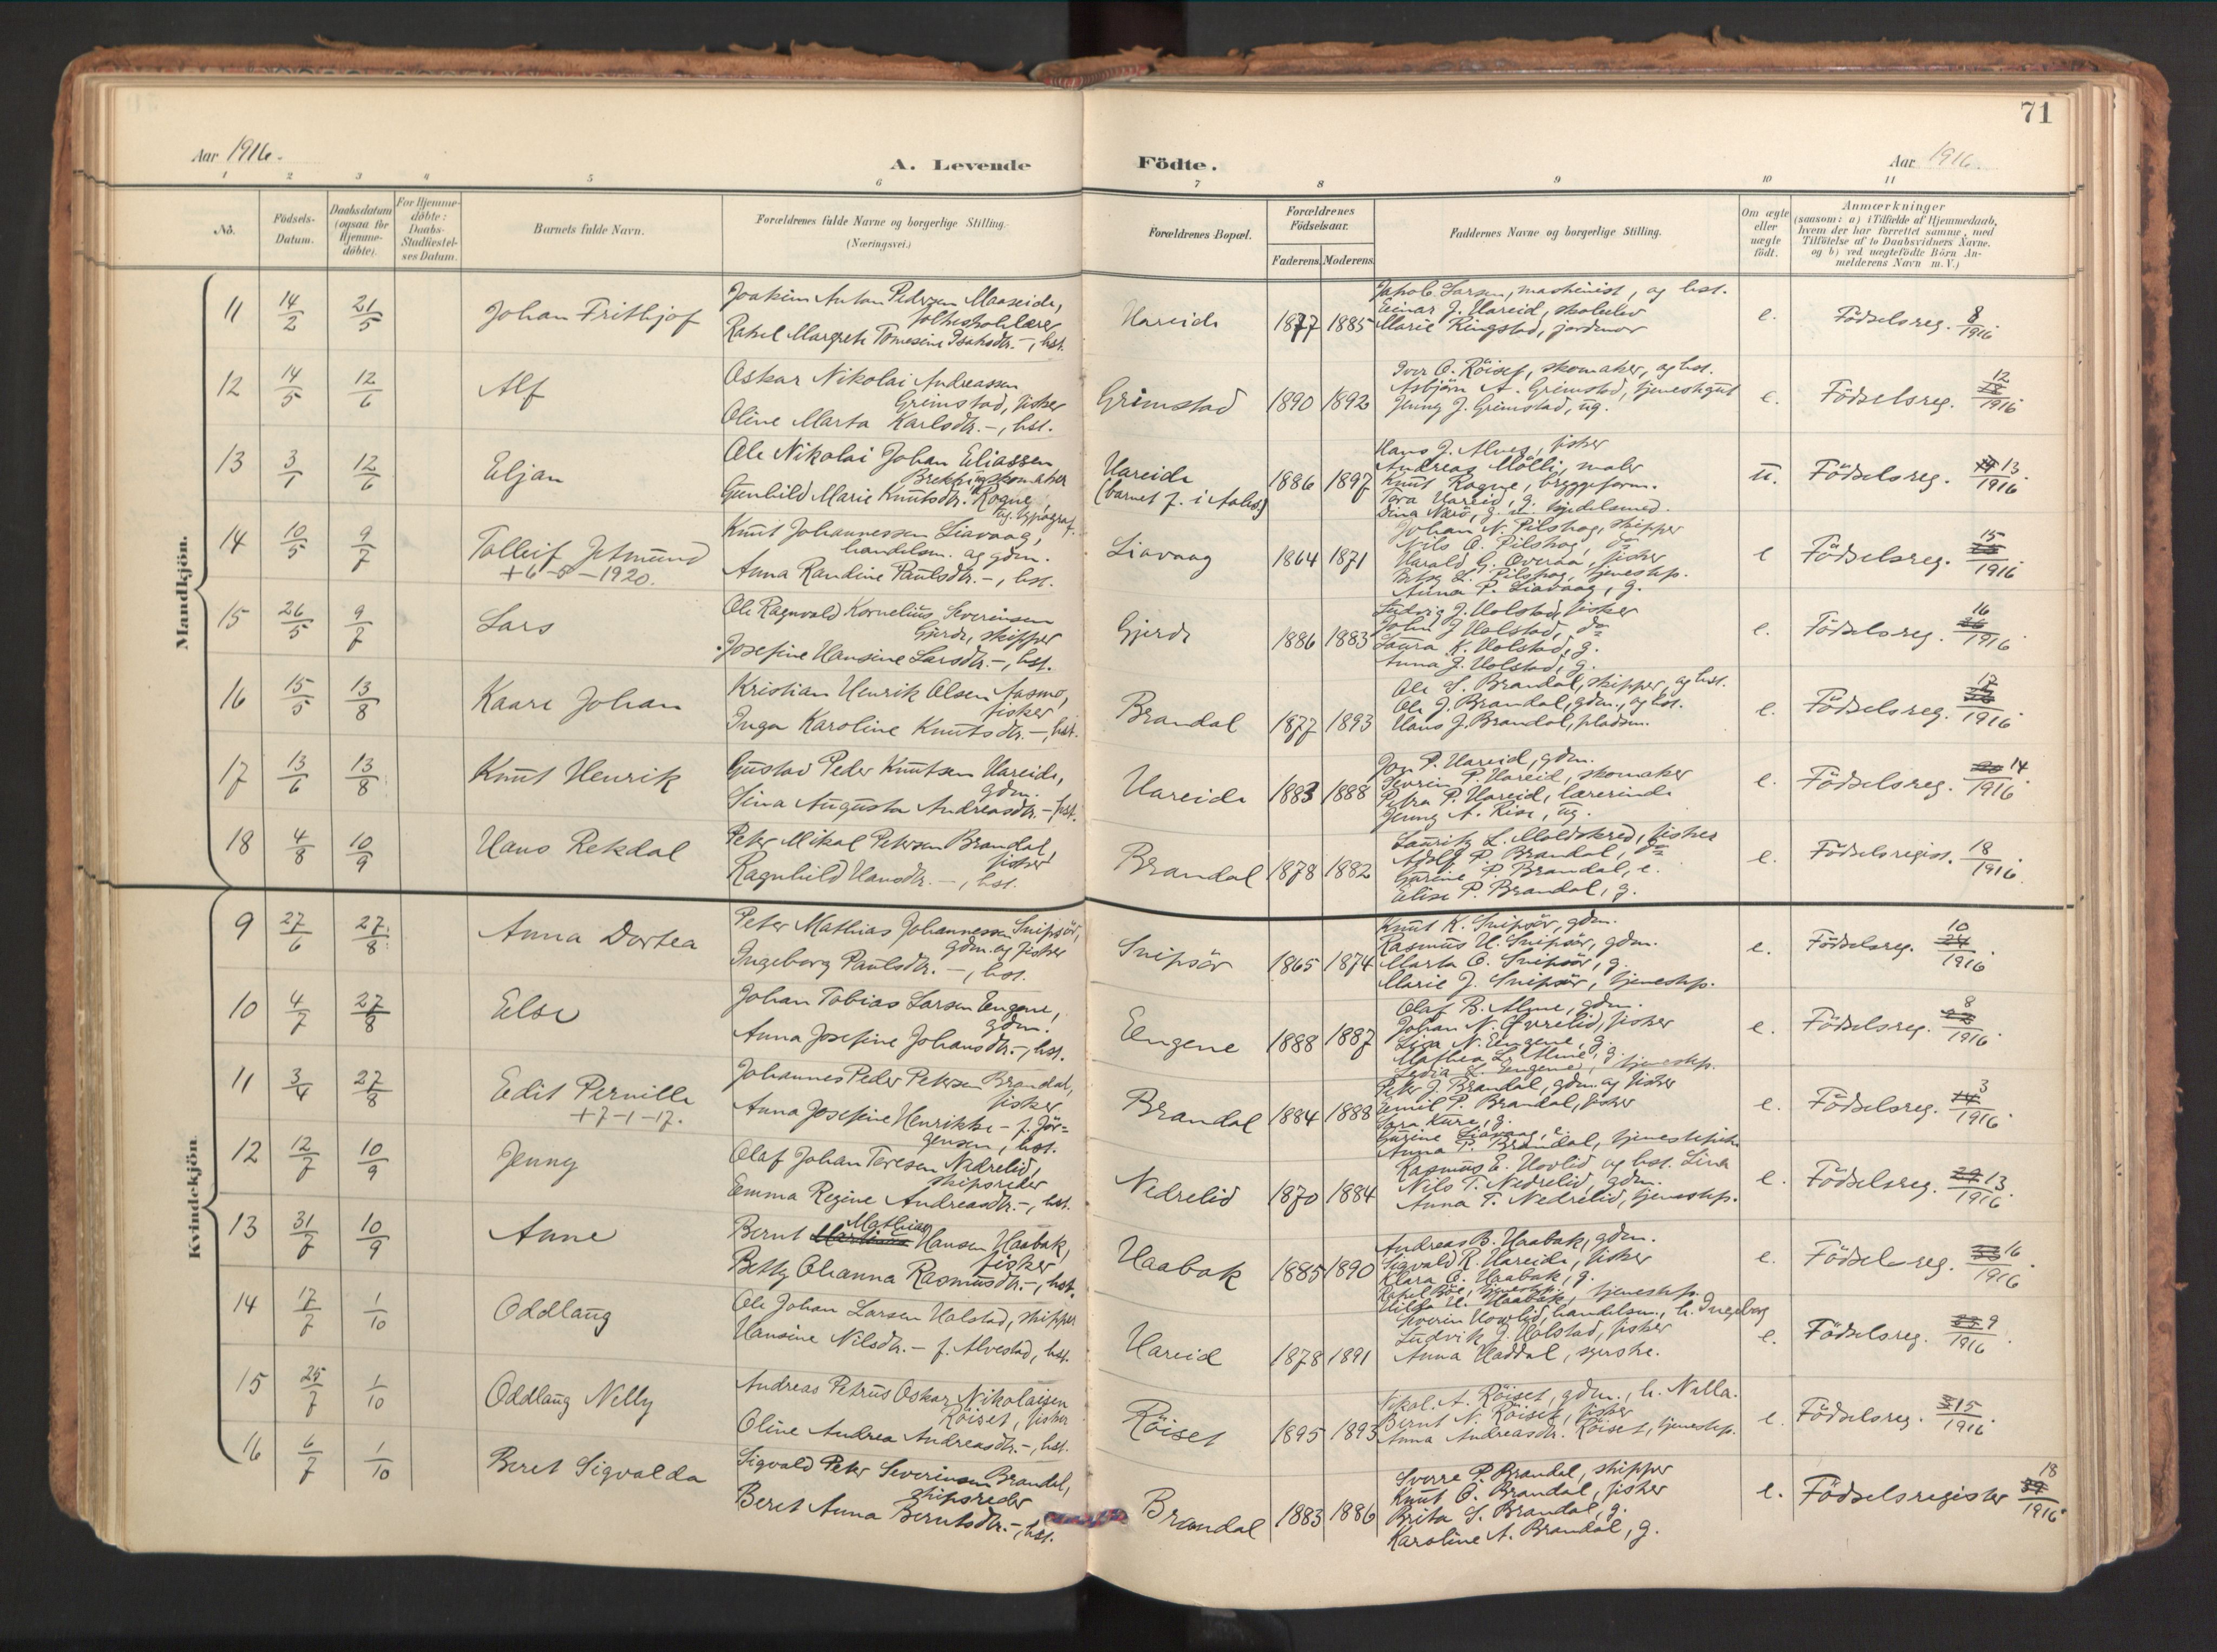 71
Aar 1916.
A. Levende Födte.
Aar 1916.
1 2 3 4 5 6 7 8 9 10 11
No.
Födsels-Datum.
Daabsdatum (ogsaa for Hjemme-döbte).
For Hjemme-döbte: Daabs-Stadfæstel-ses Datum.
Barnets fulde Navn.
Forældrenes fulde Navne og borgerlige Stilling. (Næringsvei.)
Forældrenes Bopæl.
Forældrenes Födselsaar.
Faderens. Moderens.
Faddernes Navne og borgerlige Stilling.
Om ægte eller uægte födt.
Anmærkninger
(saasom: a) i Tilfælde af Hjemmedaab,
hvem der har forrettet samme, med
Tilföielse af to Daabsvidners Navne.
og b) ved uægtefödte Börn An-
melderens Navn m. V.)
Mandkjön.
11 14/2 21/5 Johan Frithjof
Joakim Anton Pedersen Maaseide,
folkeskolelærer
Rakel Margrete Tomesine Isaksdtr. –, hst.
Hareide 1877 1885
Jakob Larsen, maskinist, og hst.
Einar J. Hareid, skoleelev
Marie Ringstad, jordmor
e. Födselsreg. 8/1916
12 14/5 12/6 Alf
Oskar Nikolai Andreassen
Grimstad, fisker
Oline Marta Karlsdtr. –, hst.
Grimstad 1890 1892
Iver O. Röiset, skomaker, og hst.
Asbjörn A. Grimstad, tjenestegut
Jenny J. Grimstad, ug.
e. Födselsreg. 12/1916
13 3/1 12/6 Eljan
Ole Nikolai Johan Eliassen
Brekke, skomaker
Gunhild Marie Knutsdtr. Rogne,
ug. typograf.
Hareide
(barnet f. i Aales.) 1886 1897
Hans J. Alves, fisker
Andreas Mölli, maler
Knut Rogne, bryggeform.
Tora Hareid, g.
u. Födselsreg. 13/1916
14 10/5 9/7 Tolleif Jetmund
+6-5-1920.
Knut Johannessen Liavaag,
handelsm. og gdm.
Anna Randine Paulsdtr. –, hst.
Liavaag 1864 1871
Johan N. Pilskog, skipper
Nils O. Pilskog, do
Harald G. Overaa, fisker
Betsy L. Pilskog, tjenestep.
Anna P. Liavaag, g.
e Födselsreg. 15/1916
15 26/5 9/7 Lars
Ole Ragnvald Kornelius Severinsen
Gjerde, skipper
Josefine Hansine Larsdtr. –, hst.
Gjerde 1886 1883
Ludvig J. Holstad, fisker
John J Holstad, do
Laura K. Holstad, g.
Anna J. Holstad, g.
e. Födselsreg. 16/1916
16 15/5 13/8 Kaare Johan
Kristian Henrik Olsen Aasmo,
fisker
Inga Karoline Knutsdtr. –, hst.
Brandal 1877 1893
Ole S. Brandal, skipper, og hst.
Ole J. Brandal, gdm., og hst.
Hans J. Brandal, pladsm.
e. Födselsreg. 17/1916
17 13/6 13/8 Knut Henrik
Gustav Peder Knutsen Hareide,
gdm.
Sina Augusta Andreasdtr. – hst.
Hareide 1883 1888
Jon P. Hareid, gdm.
Severin P. Hareid, skomaker
Petra P. Hareid, lærerinde
Jenny A. Rise, ug.
e. Födselsreg. 14/1916
18 4/8 10/9 Hans Rekdal
Peter Mikal Petersen Brandal,
fisker
Ragnhild Hansdtr. –, hst.
Brandal 1878 1882
Lauritz L. Moldskred, fisker
Adolf P. Brandal, do
Gurine P. Brandal, e.
Elise P. Brandal, g.
e. Födselsregist. 18/1916
Kvindekjön
9 27/6 27/8 Anna Dortea
Peter Mathias Johannessen Snipsör,
gdm. og fisker
Ingeborg Paulsdtr. –, hst.
Snipsör 1865 1874
Knut K. Snipsör, gdm.
Rasmus H. Snipsör, gdm.
Marta O. Snipsör, g.
Marie J. Snipsör, tjenestep.
e. Födselsreg. 10/1916
10 4/7 27/8 Else
Johan Tobias Larsen Eengene,
gdm.
Anna Josefine Johansdtr. –, hst.
Eengene 1888 1887
Olaf B. Alme, gdm.
Johan N. Overelid, fisker
Lisa N. Eengene, g.
Mathea L. Alme, g.
e. Födselsreg. 8/1916
11 3/4 27/8 Edit Pernille
+7-1-17.
Johannes Peder Petersen Brandal,
fisker
Anna Josefine Henrikke – f. Jör-
gensen, hst.
Brandal 1884 1888
Peter J. Brandal, gdm. og fisker
Emil P. Brandal, fisker
Gurine Liavaag, e.
Anna P. Brandal, tjenestepike
e. Födselsreg. 3/1916
12 12/7 10/9 Jenny
Olaf Johan Teresen Nedrelid,
skipsreder
Emma Regine Andreasdtr. –, hst.
Nedrelid 1870 1884
Rasmus E. Hovlid og hst. Lina
Nils T. Nedrelid, gdm.
Anna T. Nedrelid, tjenestep.
e. Födselsreg. 13/1916
13 31/7 10/9 Anne
Bernt Mathias Hansen Haabak,
fisker
Betty Ohanna Rasmusdtr. –, hst.
Haabak 1885 1890
Andreas B. Haabak, gdm.
Sigvald R. Hareide, fisker
Klara O. Haabak, g.
Hilda H. Haabak, tjenestep.
e. Födselsreg. 16/1916
14 17/7 1/10 Oddlaug
Ole Johan Larsen Holstad, skipper
Hansine Nilsdtr. – f. Alvestad, hst.
Hareid 1878 1891
Severin Hovlid, handelsm., h. Ingeborg
Ludvik J. Holstad, fisker
Anna Haddal, syerske.
e. Födselsreg. 9/1916
15 25/7 1/10 Oddlaug Nelly
Andreas Petrus Oskar Nikolaisen
Röiset, fisker
Oline Andrea Andreasdtr. –, hst.
Röiset 1895 1893
Nikol. A. Röiset, gdm., h. Nilla.
Bernt N. Röiset, fisker
Anna Andreasdtr. Röiset, tjenestep.
e. Födselsreg. 15/1916
16 6/7 1/10 Beret Sigvalda
Sigvald Peter Severinsen Brandal,
skipsreder
Beret Anna Berntsdtr. –, hst.
Brandal 1883 1886
Sverre P. Brandal, skipper
Knut O. Brandal, fisker
Brita S. Brandal, g.
Karoline A. Brandal, g.
e. Födselsregister 18/1916